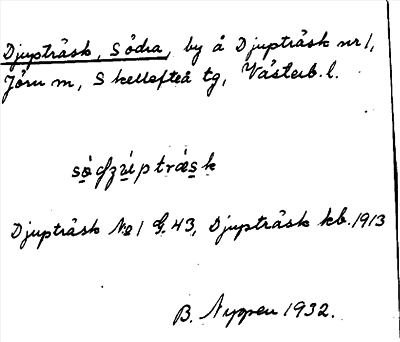 Djupträsk, Södra, by å Djupträsk nr 1,
Jörn m, Skellefteå tg, Västerb. l.
Djupträsk No 1 G. 43, Djupträsk kb. 1913
B. Nyppen 1932.